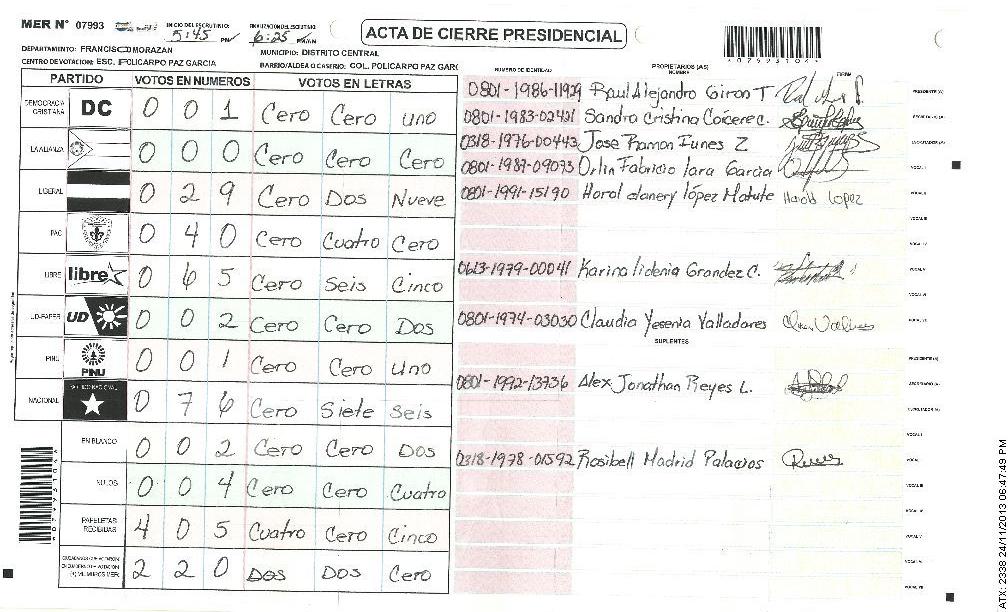 MER Nº 07993
INICIO DEL ESCRUTINIO: 5:45 PM
FINALIZACION DEL ESCRUTINIO 6:25 PM/AM
ACTA DE CIERRE PRESIDENCIAL
07993104
DEPARTAMENTO: FRANCISCO MORAZAN
MUNICIPIO: DISTRITO CENTRAL
CENTRO DE VOTACION: ESC. POLICARPO PAZ GARCIA
BARRIO/ALDEA O CASERIO: COL. POLICARPO PAZ GARC
PARTIDO VOTOS EN NUMEROS VOTOS EN LETRAS
DEMOCRACIA CRISTIANA DC 0 0 1 Cero Cero uno
LA ALIANZA 0 0 0 Cero Cero Cero
LIBERAL 0 2 9 Cero Dos Nueve
PAC 0 4 0 Cero Cuatro Cero
LIBRE libre 0 6 5 Cero Seis Cinco
UD-FAPER UD 0 0 2 Cero Cero Dos
PINU PINU 0 0 1 Cero Cero uno
NACIONAL 0 7 6 Cero Siete Seis
EN BLANCO 0 0 2 Cero Cero Dos
NULOS 0 0 4 Cero Cero Cuatro
PAPELETAS RECIBIDAS 4 0 5 Cuatro Cero Cinco
2 2 0 Dos Dos Cero
NUMERO DE IDENTIDAD PROPIETARIOS (AS) NOMBRE FIRMA
0801-1986-11929 Raul Alejandro Giron T PRESIDENTE (A)
0801-1983-02421 Sandra Cristina SECRETARIO (A)
0318-1976-00443 Jose Ramon Funes Z ESCRUTADOR (A)
0801-1989-09073 Orlin Fabricio lara Garcia VOCAL I
0801-1991-15190 Harol danery lópez Matute Harold Lopez VOCAL II
VOCAL III
VOCAL IV
0613-1979-00041 Karina lidenia Grandez C. VOCAL V
VOCAL VI
0801-1974-03030 Claudia Yesenia Valladares VOCAL VII
SUPLENTES
PRESIDENTE (A)
0801-1992-13736 Alex Jonathan Reyes L. SECRETARIO (A)
ESCRUTADOR (A)
VOCAL I
0318-1978-01592 Rosibell Madrid Palacios VOCAL
VOCAL III
VOCAL IV
VOCAL V
VOCAL VI
VOCAL VII
ATX: 2338 24/11/2013 06:47:49 PM